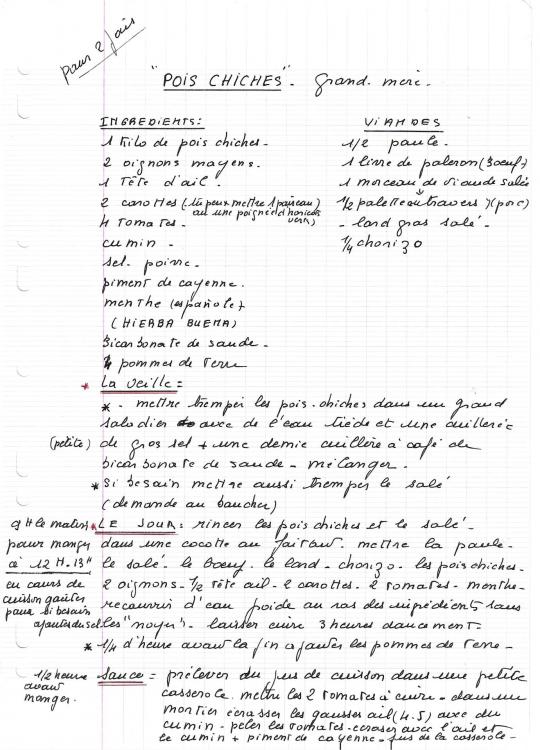 pour 2 fois
"POIS CHICHES" - Grand. mère.
INGREDIENTS:
1 kilo de pois chiches.
2 oignons moyens.
1 Tête d'ail.
2 carottes (tu peux mettre 1 poireau)
ou une poignée d'haricots
verts)
4 Tomates.
cumin -
sel. poivre.
piment de cayenne.
menthe (española)
(HIERBA BUENA)
Bicarbonate de soude -
4 pommes de terre
VIANDES
1/2 paule.
1 livre de paleron (Boeuf)
1 morceau de viande salée
1/2 palette ou travers) (porc)
- lard gras salé -
1/4 chorizo
* La veille =
* - mettre tremper les pois-chiches dans un grand
saladier avec de l'eau tiède et une cuillerée
(petite) de gros sel + une demie cuillère à café de
bicarbonate de soude - mélanger.
* Si besoin mettre aussi tremper le salé
(demande au boucher)
9H le matin
pour manger
à 12 H - 13H
en cours de
cuisson goûter
pour si besoin
ajouter du sel
* LE JOUR: rincer les pois chiches et le salé -
dans une cocotte ou faitout. mettre la paule -
le salé. le boeuf. le lard - chorizo. les pois chiches.
2 oignons - 1/2 tête ail - 2 carottes. 2 tomates - menthe -
recouvrir d'eau froide au ras des ingrédients sans
les "noyer". laisser cuire 3 heures doucement.
* 1/4 d'heure avant la fin ajouter les pommes de terre -
1/2 heure
avant
manger.
Sauce = prélever du jus de cuisson dans une petite
casserole. mettre les 2 tomates à cuire - dans un
mortier écrasser les gousses ail (4.5) avec du
cumin - peler les tomates - écraser avec l'ail et
le cumin + piment de cayenne - jus de la casserole -